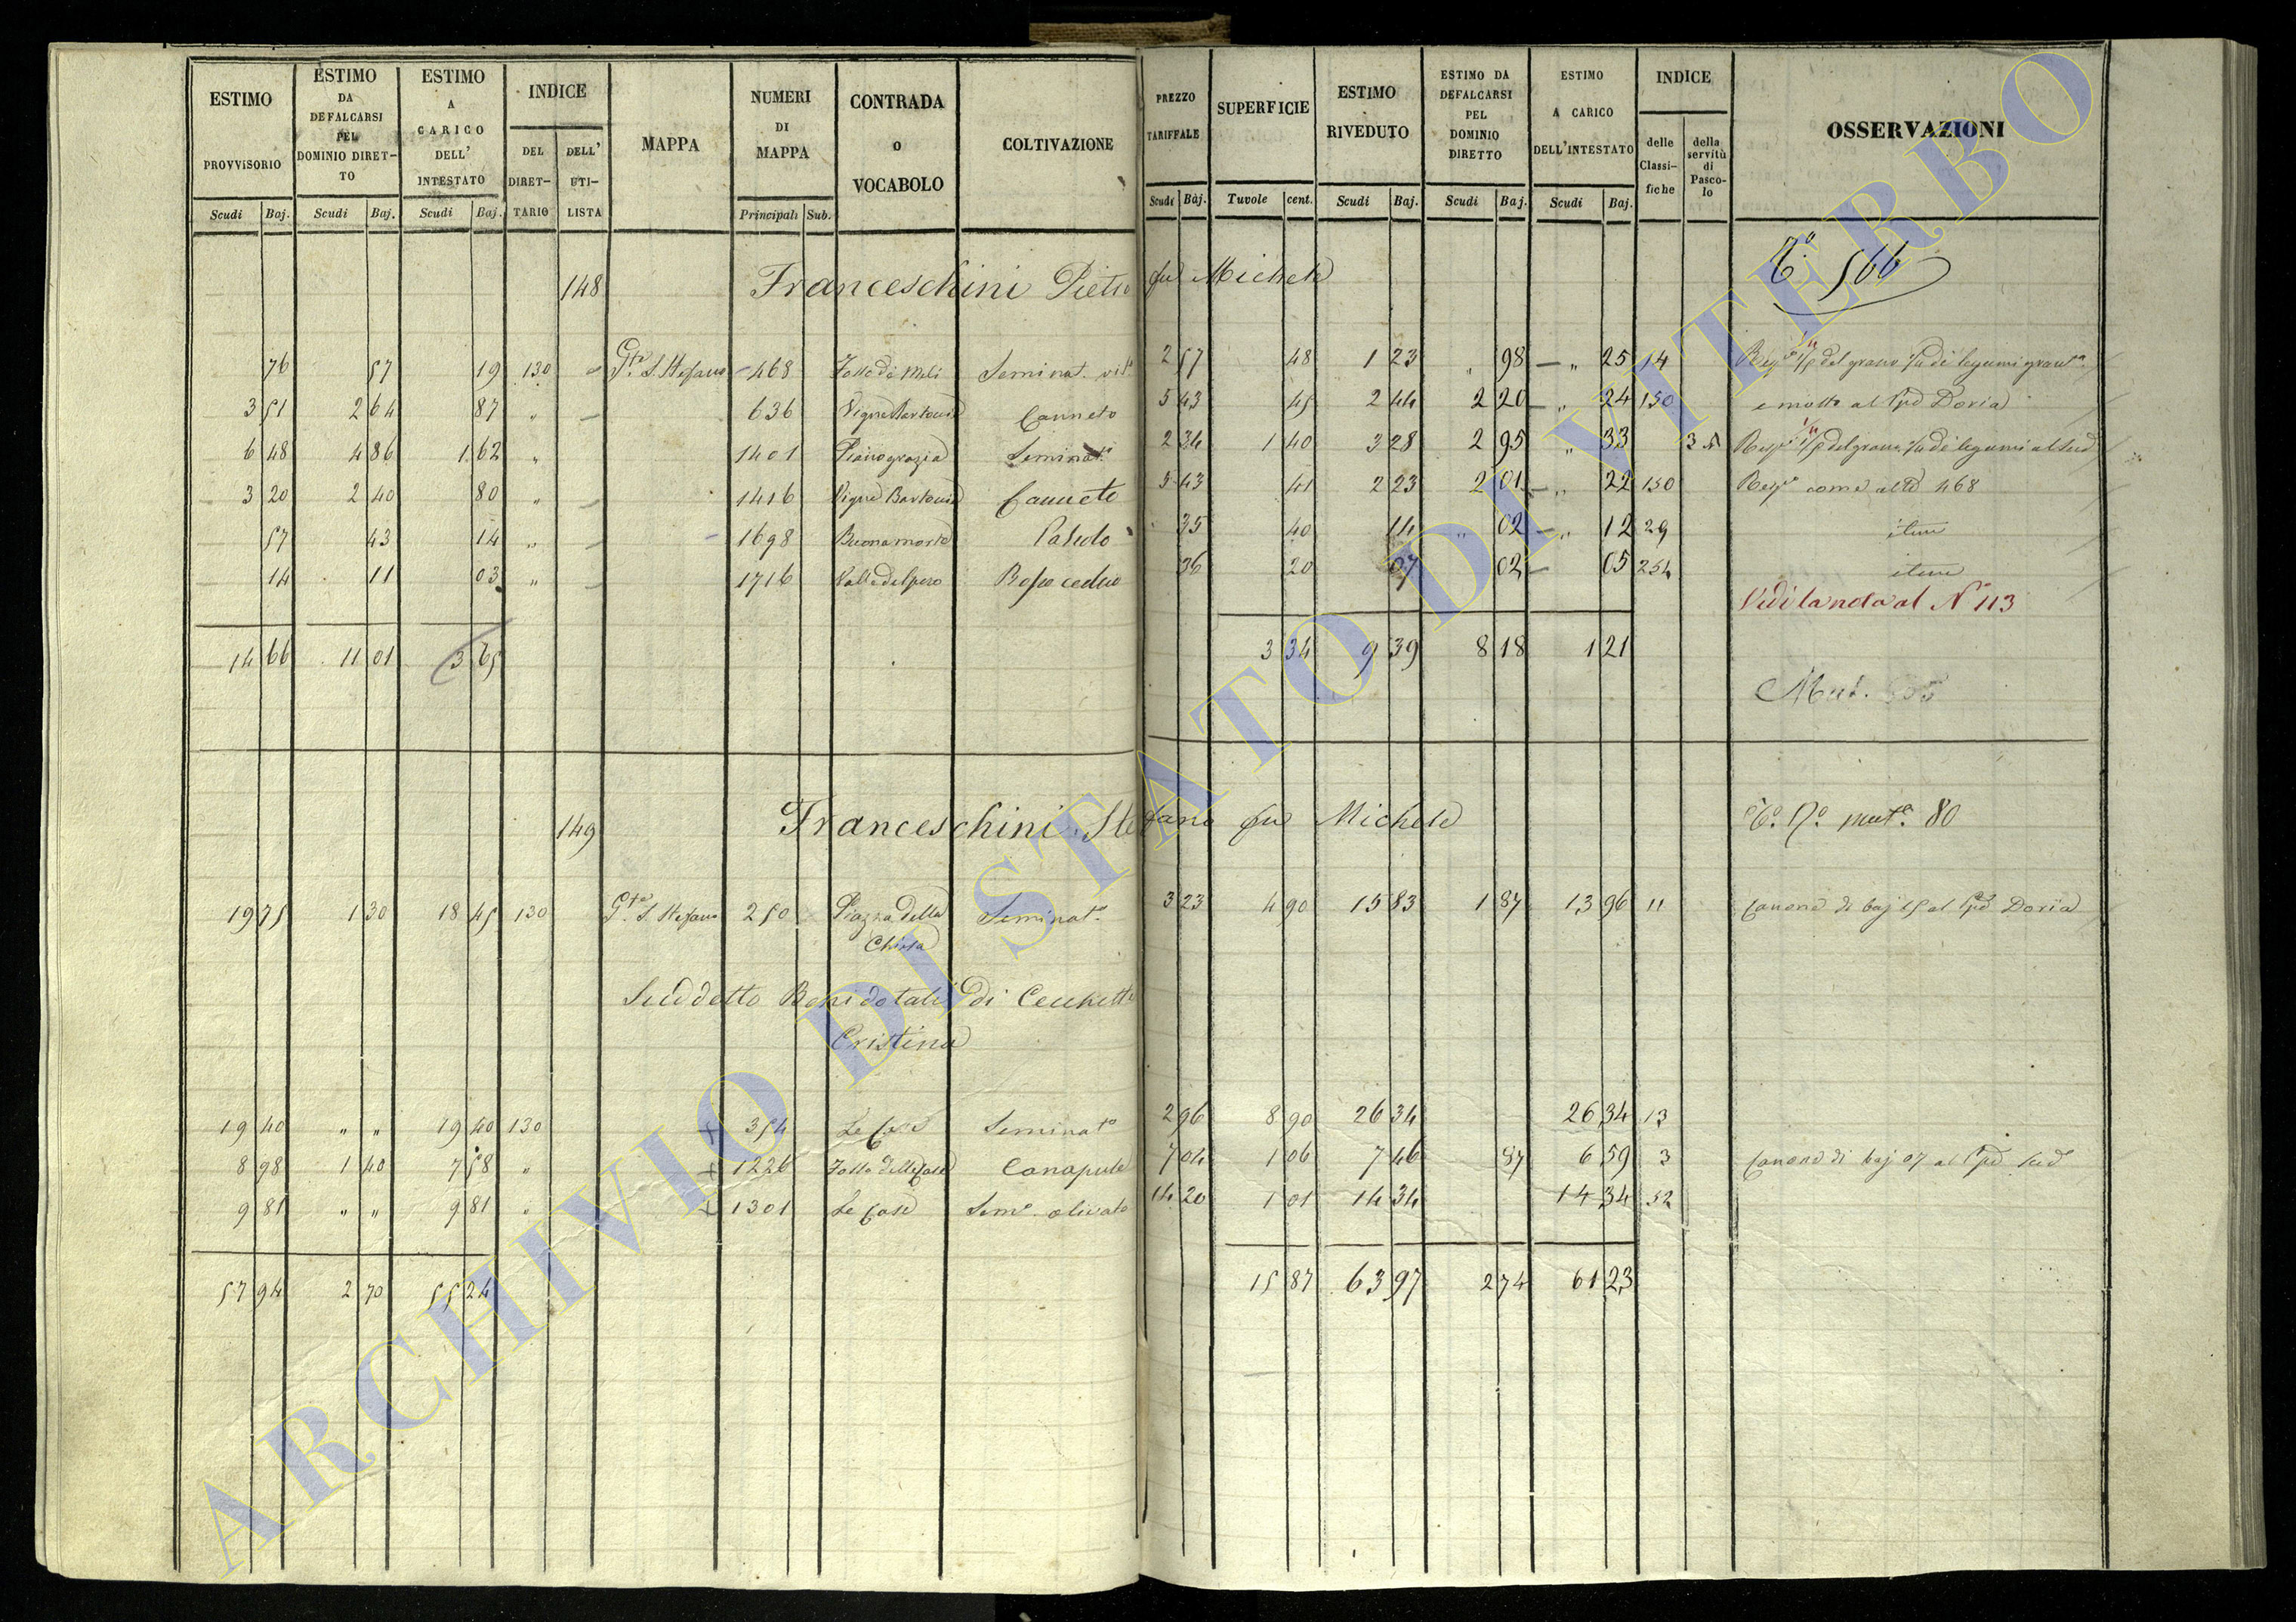 ESTIMO PROVVISORIO Scudi Baj. ESTIMO DA DEFALCARSI PEL DOMINIO DIRETTO Scudi Baj. ESTIMO A CARICO DELL' INTESTATO Scudi Baj. INDICE DEL DIRETTARIO DELL' UTILISTA MAPPA NUMERI DI MAPPA Principali Sub. CONTRADA O VOCABOLO COLTIVAZIONE PREZZO TARIFFALE Scudi Baj. SUPERFICIE Tavole cent. ESTIMO RIVEDUTO Scudi Baj. ESTIMO DA DEFALCARSI PEL DOMINIO DIRETTO Scudi Baj. ESTIMO A CARICO DELL'INTESTATO Scudi Baj. INDICE delle Classifiche della servitù di Pascolo OSSERVAZIONI
148 Franceschini Pietro fu Michele 566
76 57 19 130 Gte S. Stefano 468 Seminat. vit 2 57 48 1 23 " 98 " 25 14
3 51 2 64 87 " 636 Canneto 5 43 45 2 44 2 20 " 24 150 al Ppe Doria
6 48 4 86 1.62 " 1401 Seminat. 2 34 1 40 3 28 2 95 " 33
3 20 2 40 80 " 1416 Canneto 5 43 41 2 23 2 01 " 22 150 come al 468
57 43 14 " 1698 Buonamorte 35 40 14 " 02 " 12 29 item
14 11 03 " 1716 Bosco ceduo 36 20 07 02 05 254 item
Vedi la nota al N° 113
14 66 11 01 3 65 3 34 9 39 8 18 1 21
Mut.
149 Franceschini Stefano fu Michele mute. 80
19 75 1 30 18 45 130 Gte S. Stefano 250 Piazza della Chiesa Seminat. 3 23 4 90 15 83 1 87 13 96 11 Canone di baj 15 al Ppe Doria
Suddetto Beni dotali di Cecchetti
Cristina
19 40 " " 19 40 130 + 354 Le Case Seminato 2 96 8 90 26 34 26 34 13
8 98 1 40 7 58 " + 1226 Fosso delle Case Canapule 7 04 1 06 7 46 87 6 59 3 Canone di baj 07 al Ppe
9 81 " " 9 81 " + 1301 Le Case Semo. olivato 14 20 1 01 14 34 14 34 52
57 94 2 70 55 24 15 87 63 97 2 74 61 23
ARCHIVIO DI STATO DI VITERBO